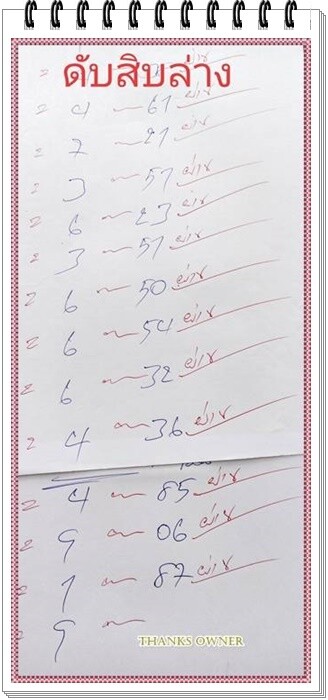 ดับสิบล่าง
2 4 ~ 61 ผ่าน
2 7 ~ 21 ผ่าน
2 3 ~ 57 ผ่าน
2 6 ~ 23 ผ่าน
2 3 ~ 51 ผ่าน
2 6 ~ 50 ผ่าน
2 6 ~ 54 ผ่าน
2 6 ~ 32 ผ่าน
2 4 ~ 36 ผ่าน
2 4 ~ 85 ผ่าน
2 9 ~ 06 ผ่าน
2 1 ~ 87 ผ่าน
2 9 ~
THANKS OWNER